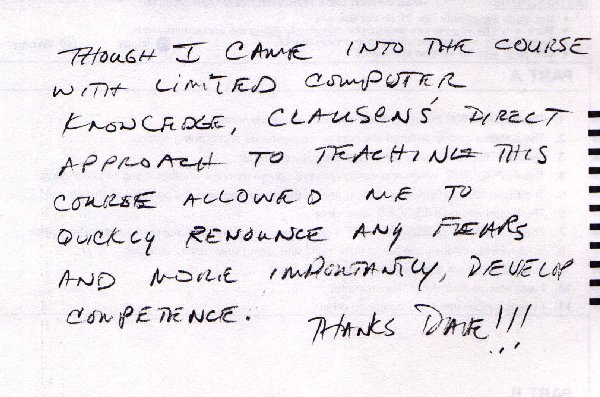 THOUGH I CAME INTO THE COURSE
WITH LIMITED COMPUTER
KNOWLEDGE, CLAUSEN'S DIRECT
APPROACH TO TEACHING THIS
COURSE ALLOWED ME TO
QUICKLY RENOUNCE ANY FEARS
AND MORE IMPORTANTLY, DEVELOP
COMPETENCE. THANKS DAVE!!!